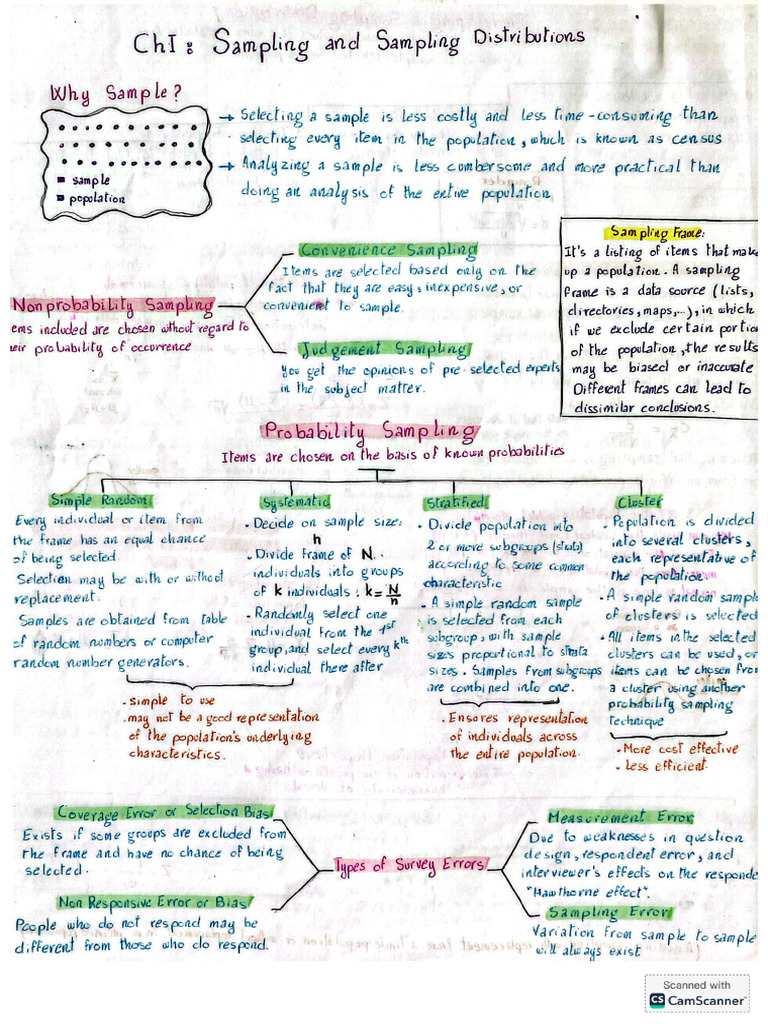 Ch I : Sampling and Sampling Distributions
Why Sample?
■ sample
■ population
→ Selecting a sample is less costly and less time-consuming than
selecting every item in the population, which is known as census
→ Analyzing a sample is less combersome and more practical than
doing an analysis of the entire population
Sampling Frame:
It's a listing of items that make
up a population. A sampling
frame is a data source (lists,
directories, maps,...), in which
if we exclude certain portio
of the population, the results
may be biased or inaccurate
Different frames can lead to
dissimilar conclusions.
Nonprobability Sampling
ems included are chosen without regard to
eir probability of occurrence
Convenience Sampling
Items are selected based only on the
fact that they are easy, inexpensive, or
convenient to sample.
Judgement Sampling
You get the opinions of pre-selected experts
in the subject matter.
Probability Sampling
Items are chosen on the basis of known probabilities
Simple Random
Every individual or item from
the frame has an equal chance
of being selected.
Selection may be with or without
replacement.
Samples are obtained from table
of random numbers or computer
random number generators.
Systematic
• Decide on sample size:
n
• Divide frame of N
individuals into groups
of k individuals : k = N/n
• Randomly select one
individual from the 1st
group, and select every kth
individual there after
• simple to use
• may not be a good representation
of the population's underlying
characteristics.
Stratified
• Divide population into
2 or more subgroups (strata)
according to some common
characteristic
• A simple random sample
is selected from each
subgroup, with sample
sizes proportional to strata
sizes. Samples from subgroups
are combined into one.
• Ensores representation
of individuals across
the entire population.
Cluster
• Population is divided
into several clusters,
each representative of
the population
• A simple random sampl
of clusters is selected
• All items in the selected
clusters can be used, or
items can be chosen from
a cluster using another
probability sampling
technique
• More cost effective
• Less efficient.
Types of Survey Errors
Coverage Error or Selection Bias
Exists if some groups are excluded from
the frame and have no chance of being
selected.
Non Responsive Error or Bias
People who do not respond may be
different from those who do respond.
Measurement Error
Due to weaknesses in question
design, respondent error, and
interviewer's effects on the responde
"Hawthorne effect".
Sampling Error
Variation from sample to sample
will always exist
Scanned with
CS CamScanner